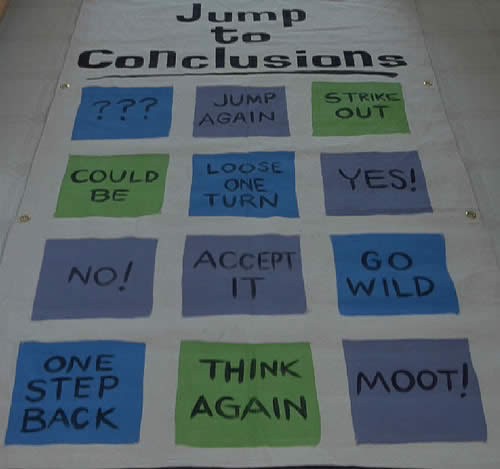 Jump
to
Conclusions
???
JUMP
AGAIN
STRIKE
OUT
COULD
BE
LOOSE
ONE
TURN
YES!
NO!
ACCEPT
IT
GO
WILD
ONE
STEP
BACK
THINK
AGAIN
MOOT!